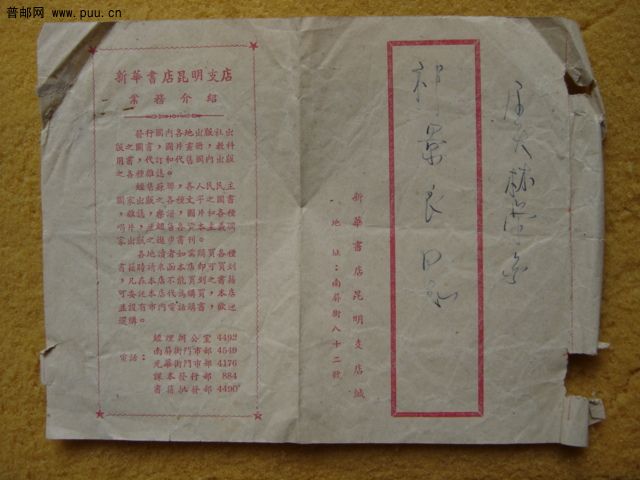 普邮网 www.puu.cn
新華書店昆明支店
業務介紹
發行國內各地出版社出
版之圖書，圖片畫册，教科
用書，代訂和代售國內出版
之各種雜誌。
經售蘇聯，各人民民主
國家出版之各種文字之圖書
雜誌，樂譜，圖片和各種
唱片，並經售各資本主義國
家出版之進步書刊。
各地讀者如需購買各種
書籍時請來函本店即可買到
，凡在本店不能買到之書籍
可委託本店代為購買，本店
並設有市內電話購書，歡迎
選購。
電話：
經理辦公室 4493
南屏街門市部 4549
光華街門市部 4176
課本發行部 884
書籍批發部 4490
新華書店昆明支店緘
地址：南屏街八十二號